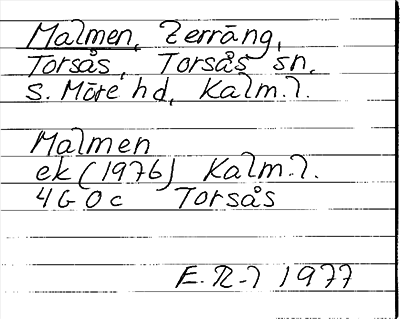 Malmen, Terräng,
Torsås, Torsås sn.
S. Möre hd, Kalm.l.
Malmen
ek (1976) Kalm.l.
4G 0c Torsås
E.R-l 1977